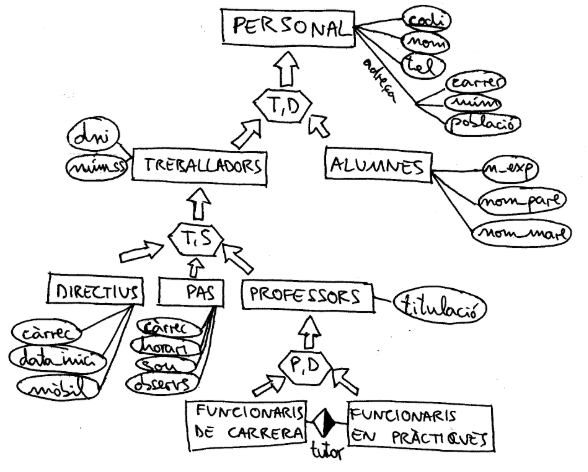 PERSONAL
codi
nom
tel
adreça
carrer
núm
població
T,D
dni
númss
TREBALLADORS
ALUMNES
n_exp
nom_pare
nom_mare
T,S
DIRECTIUS
PAS
PROFESSORS
titulació
càrrec
data inici
mòbil
càrrec
horari
sou
observs
P,D
FUNCIONARIS
DE CARRERA
FUNCIONARIS
EN PRÀCTIQUES
tutor